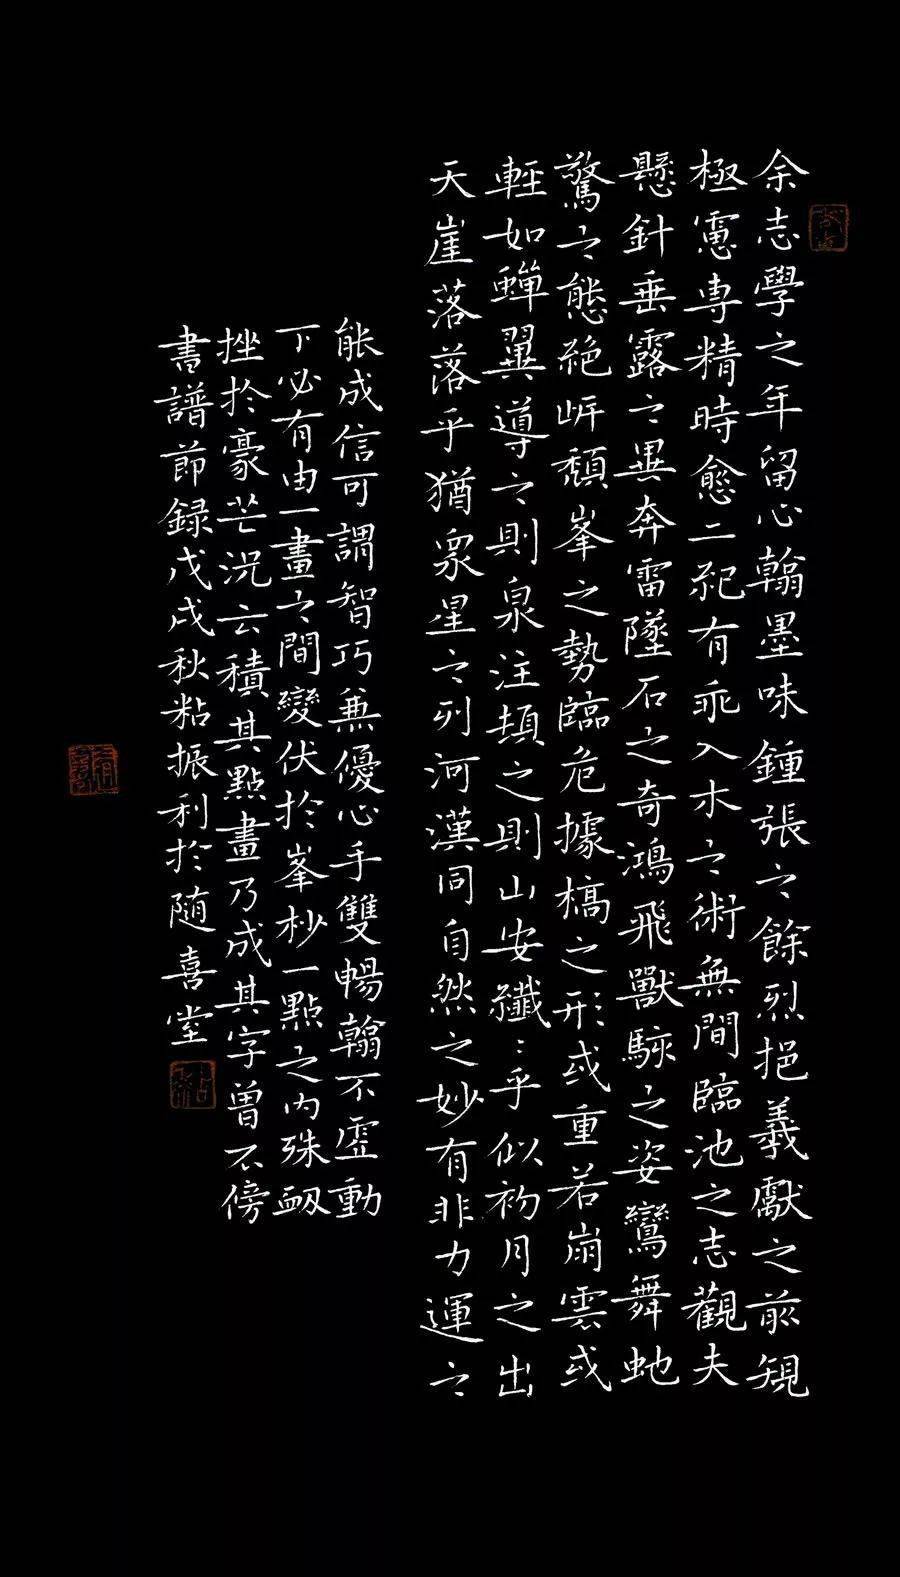 余志學之年留心翰墨味鍾張之餘烈挹羲獻之前規
極慮專精時愈二紀有乖入木之術無間臨池之志觀夫
懸針垂露之異奔雷墜石之奇鴻飛獸駭之姿鸞舞虵
驚之態絶岸頹峯之勢臨危據槁之形或重若崩雲或
輕如蟬翼導之則泉注頓之則山安纖〻乎似初月之出
天崖落落乎猶衆星之列河漢同自然之妙有非力運之
能成信可謂智巧兼優心手雙暢翰不虛動
下必有由一畫之間變伏於峯杪一點之內殊衂
挫於豪芒況云積其點畫乃成其字曾不傍
書譜節録戊戌秋粘振利於随喜堂